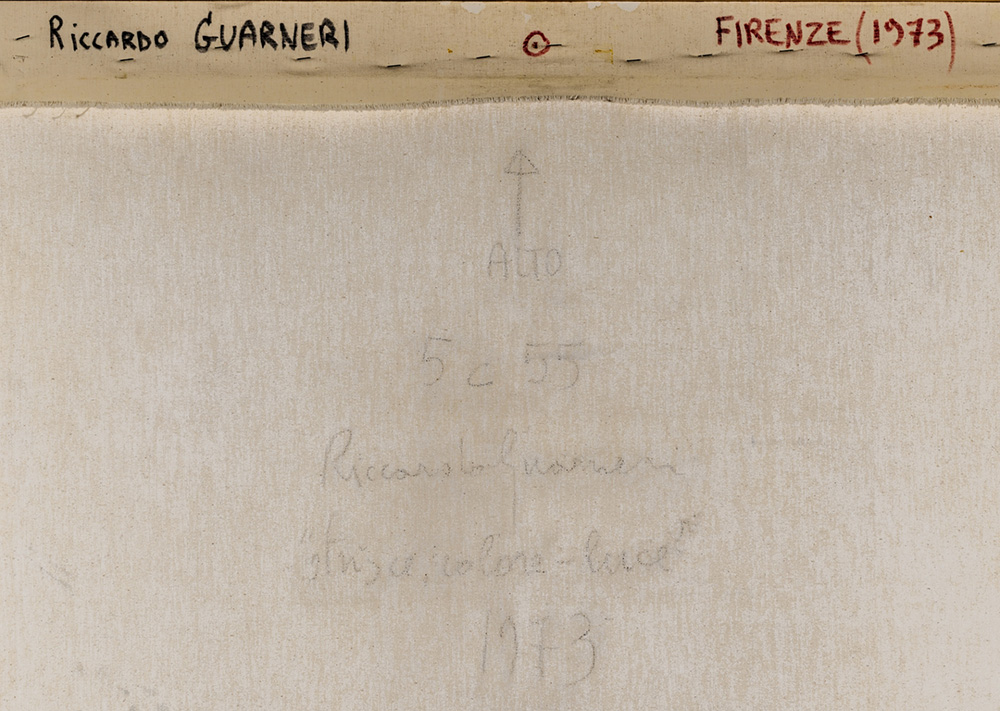 Riccardo GUARNERI FIRENZE (1973)
ALTO
5 c 55
Riccardo Guarneri
"strisce, colore-luce"
1973